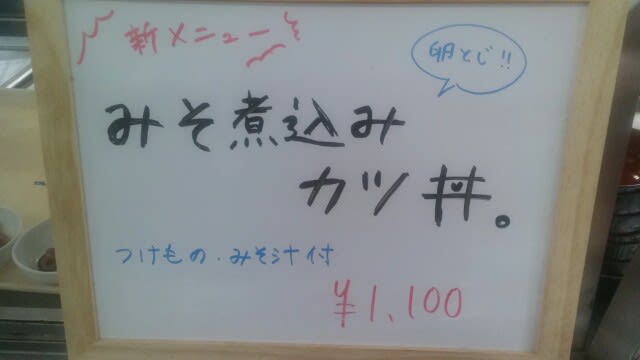 新メニュー
卵とじ!!
みそ煮込み
カツ丼。
つけもの・みそ汁付
¥1,100